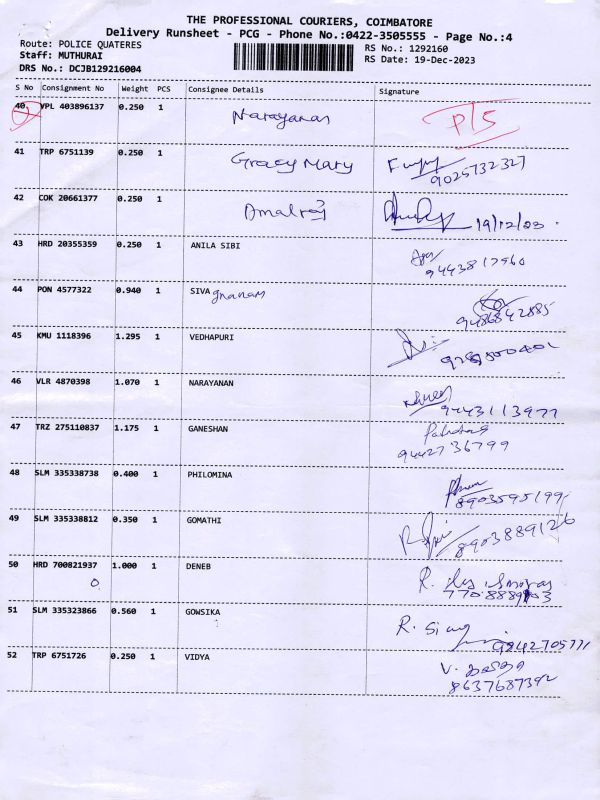 THE PROFESSIONAL COURIERS, COIMBATORE
Delivery Runsheet - PCG - Phone No.:0422-3505555 - Page No.:4
Route: POLICE QUATERES RS No.: 1292160
Staff: MUTHURAI RS Date: 19-Dec-2023
DRS No.: DCJB129216004
S No Consignment No Weight PCS Consignee Details Signature
40 VPL 403896137 0.250 1 Narayanan P/S
41 TRP 6751139 0.250 1 Gracy Mary
9025732327
42 COK 20661377 0.250 1 Amalraj 19/12/23
43 HRD 20355359 0.250 1 ANILA SIBI
9443817960
44 PON 4577322 0.940 1 SIVA gnanam
9486842885
45 KMU 1118396 1.295 1 VEDHAPURI
46 VLR 4870398 1.070 1 NARAYANAN
9443113977
47 TRZ 275110837 1.175 1 GANESHAN
9442736799
48 SLM 335338738 0.400 1 PHILOMINA
8903595199
49 SLM 335338812 0.350 1 GOMATHI
8903889126
50 HRD 700821937 1.000 1 DENEB R.
51 SLM 335323866 0.560 1 GOWSIKA R.
52 TRP 6751726 0.250 1 VIDYA V.
8637687392